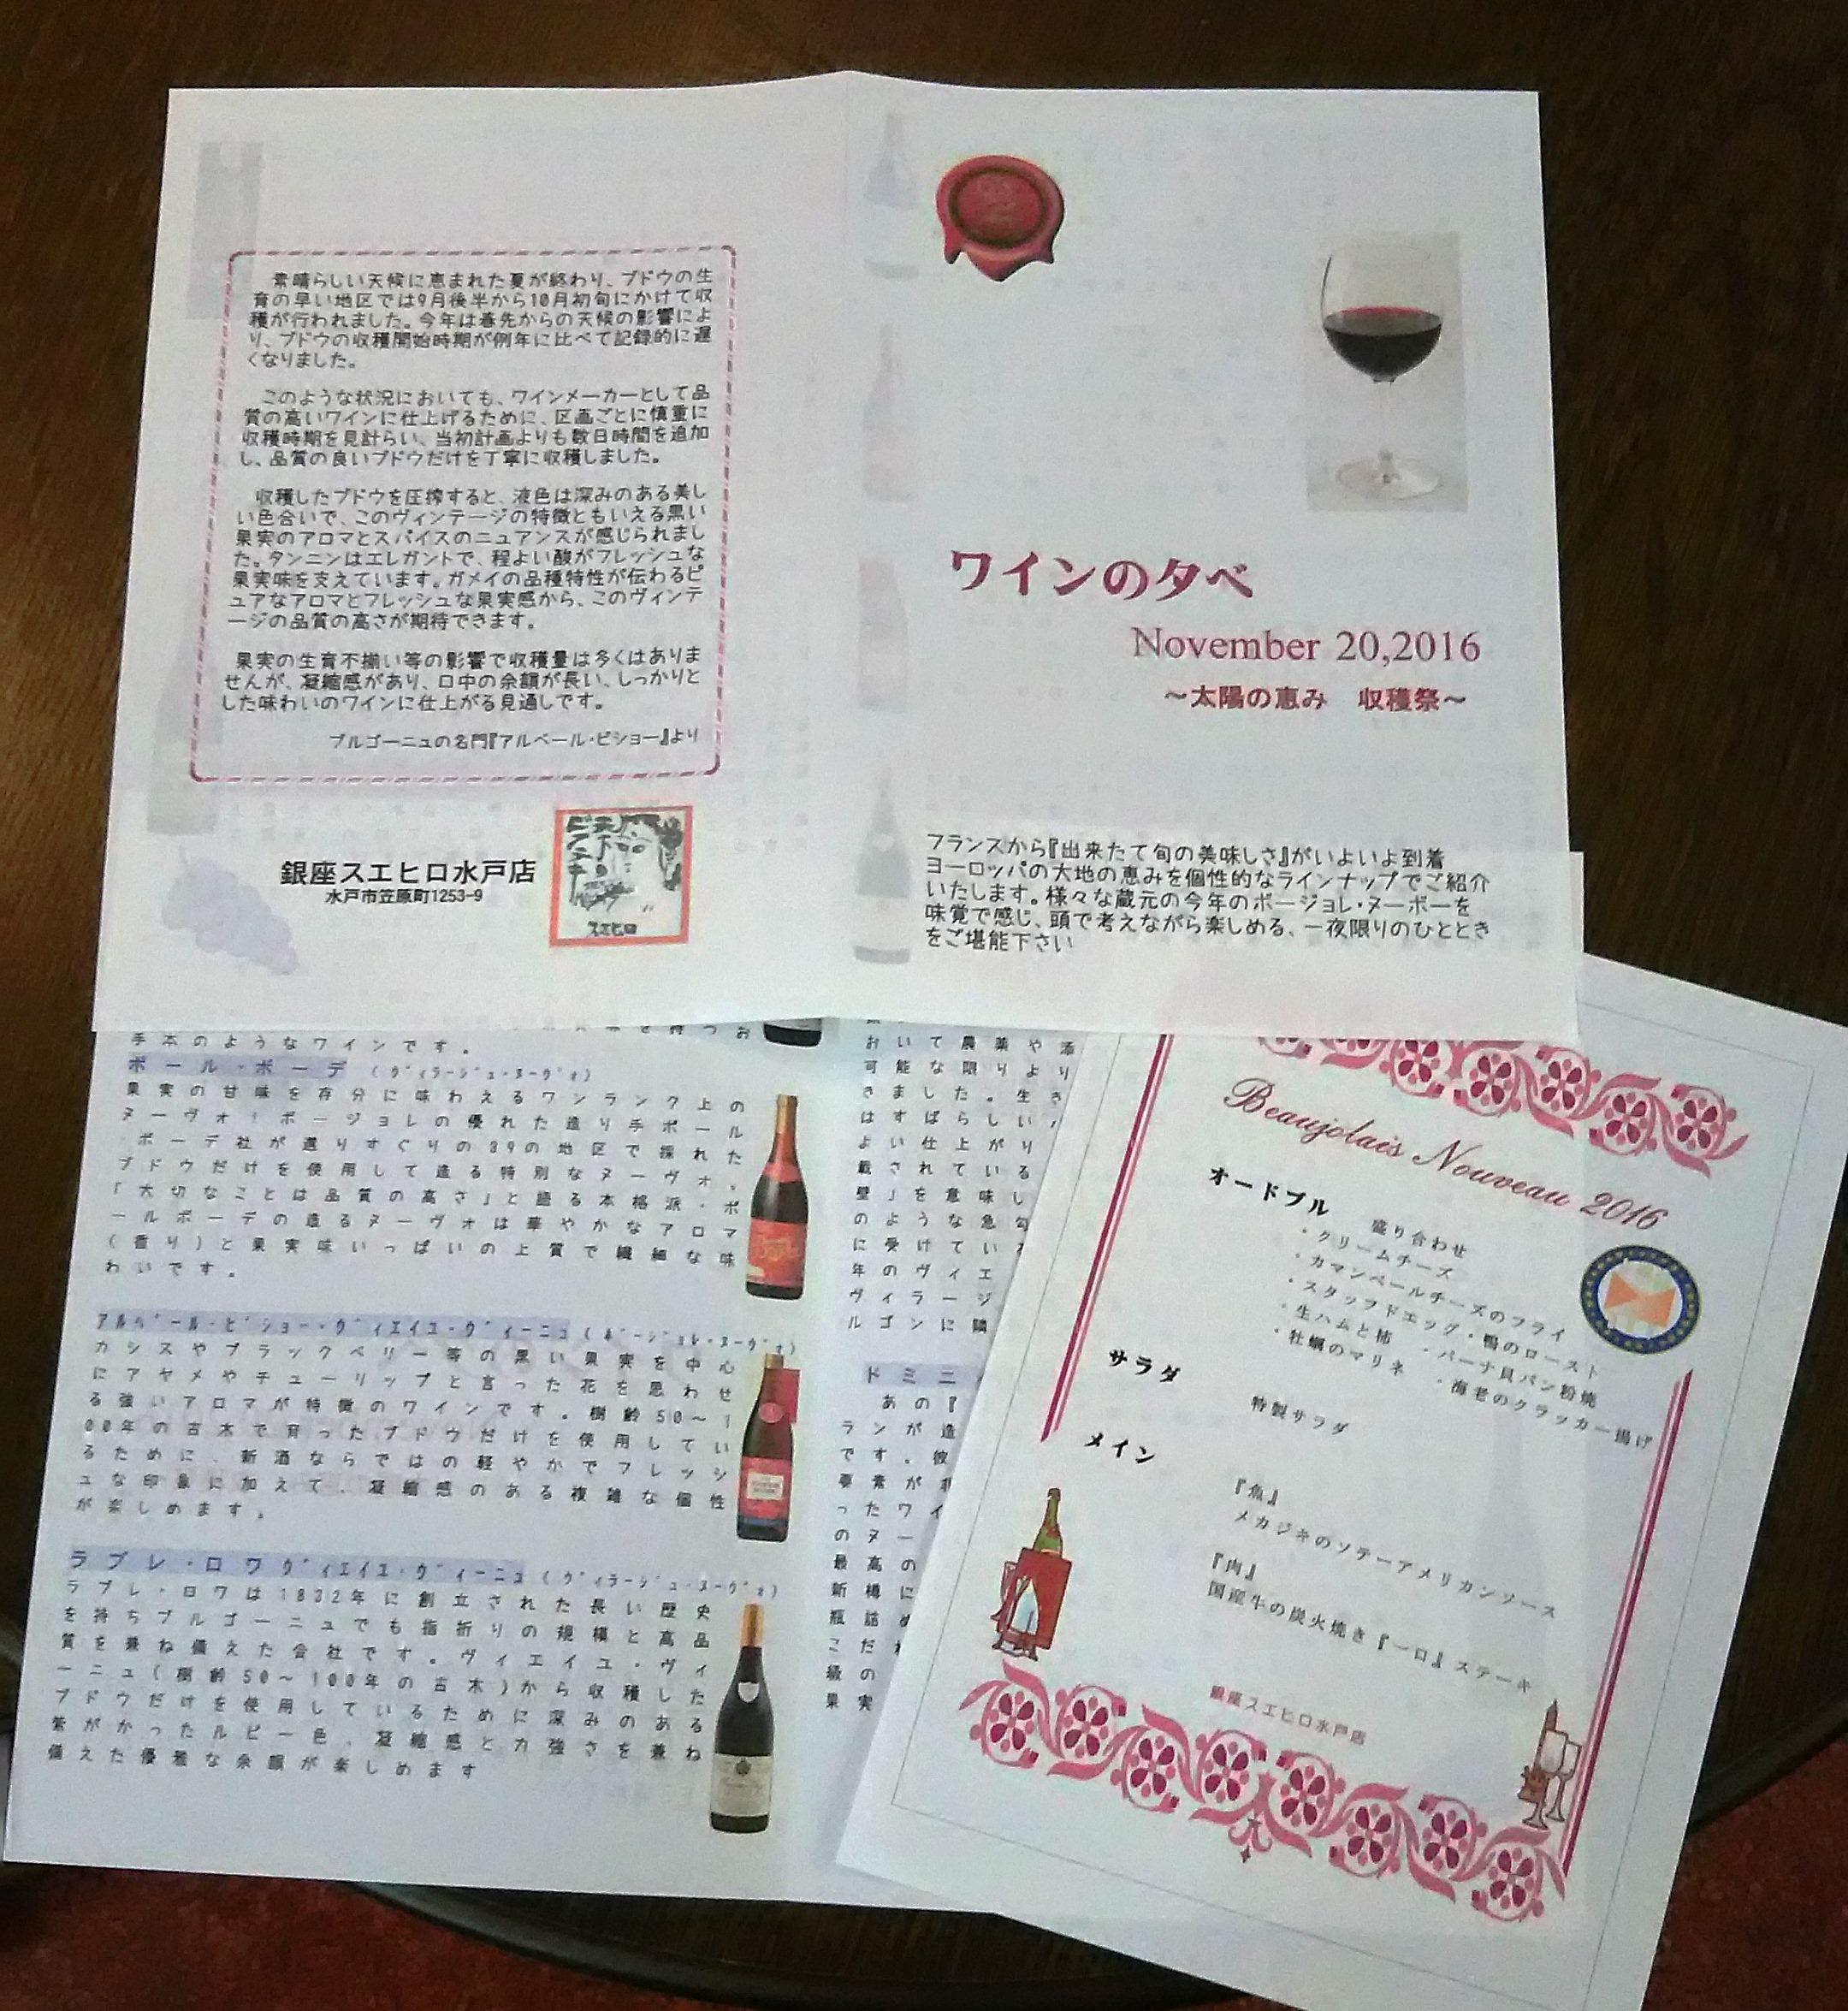 素晴らしい天候に恵まれた夏が終わり、ブドウの生
育の早い地区では9月後半から10月初旬にかけて収
穫が行われました。今年は春先からの天候の影響によ
り、ブドウの収穫開始時期が例年に比べて記録的に遅
くなりました。
このような状況においても、ワインメーカーとして品
質の高いワインに仕上げるために、区画ごとに慎重に
収穫時期を見計らい、当初計画よりも数日時間を追加
し、品質の良いブドウだけを丁寧に収穫しました。
収穫したブドウを圧搾すると、液色は深みのある美し
い色合いで、このヴィンテージの特徴ともいえる黒い
果実のアロマとスパイスのニュアンスが感じられまし
た。タンニンはエレガントで、程よい酸がフレッシュな
果実味を支えています。ガメイの品種特性が伝わるピ
ュアなアロマとフレッシュな果実感から、このヴィンテ
ージの品質の高さが期待できます。
果実の生育不揃い等の影響で収穫量は多くはありま
せんが、凝縮感があり、口中の余韻が長い、しっかりと
した味わいのワインに仕上がる見通しです。
ブルゴーニュの名門『アルベール・ビショー』より
銀座スエヒロ水戸店
水戸市笠原町1253-9
スエヒロ
ワインの夕べ
November 20,2016
～太陽の恵み 収穫祭～
フランスから『出来たて旬の美味しさ』がいよいよ到着
ヨーロッパの大地の恵みを個性的なラインナップでご紹介
いたします。様々な蔵元の今年のボージョレ・ヌーボーを
味覚で感じ、頭で考えながら楽しめる、一夜限りのひととき
をご堪能下さい
を持つお
手本のようなワインです。
ポール・ボーデ (ヴィラージュ・ヌーヴォ)
果実の甘味を存分に味わえるワンランク上の
ヌーヴォ!ボージョレの優れた造り手ポール
・ボーデ社が選りすぐりの39の地区で採れた
ブドウだけを使用して造る特別なヌーヴォ。
「大切なことは品質の高さ」と語る本格派・ポ
ールボーデの造るヌーヴォは華やかなアロマ
(香り)と果実味いっぱいの上質で繊細な味
わいです。
ｱﾙﾍﾞｰﾙ・ﾋﾞｼｮｰ・ｳﾞｨｴｲﾕ・ｳﾞｨｰﾆｭ (ﾎﾞｰｼﾞｮﾚ・ﾇｰｳﾞｫ)
カシスやブラックベリー等の黒い果実を中心
にアヤメやチューリップと言った花を思わせ
る強いアロマが特徴のワインです。樹齢50～1
00年の古木で育ったブドウだけを使用してい
るために、新酒ならではの軽やかでフレッシ
ュな印象に加えて、凝縮感のある複雑な個性
が楽しめます。
ラブレ・ロワｳﾞｨｴｲﾕ・ｳﾞｨｰﾆｭ (ｳﾞｨﾗｰｼﾞｭ・ﾇｰｳﾞｫ)
ラブレ・ロワは1832年に創立された長い歴史
を持ちブルゴーニュでも指折りの規模と高品
質を兼ね備えた会社です。ヴィエイユ・ヴィ
ーニュ(樹齢50～100年の古木)から収穫した
ブドウだけを使用しているために深みのある
紫がかったルビー色、凝縮感と力強さを兼ね
備えた優雅な余韻が楽しめます
おいて農薬や添
可能な限りより
きました。生き
はすばらしい
よい仕上がり
載されている
壁」を意味し
のような急勾
に受けてい
年のヴィエ
ヴィラージ
ルゴンに隣
ドミニ
あの『
ランが造
です。彼
要素が
ったワイ
のヌー
最高の
新樽に
瓶詰め
こだわ
級の
果実
Beaujolais Nouveau 2016
オードブル
盛り合わせ
・クリームチーズ
・カマンベールチーズのフライ
・スタッフドエッグ・鴨のロースト
・生ハムと柿 ・パーナ貝パン粉焼
・牡蠣のマリネ ・海老のクラッカー揚げ
サラダ
特製サラダ
メイン
『魚』
メカジキのソテーアメリカンソース
『肉』
国産牛の炭火焼き『一口』ステーキ
銀座スエヒロ水戸店